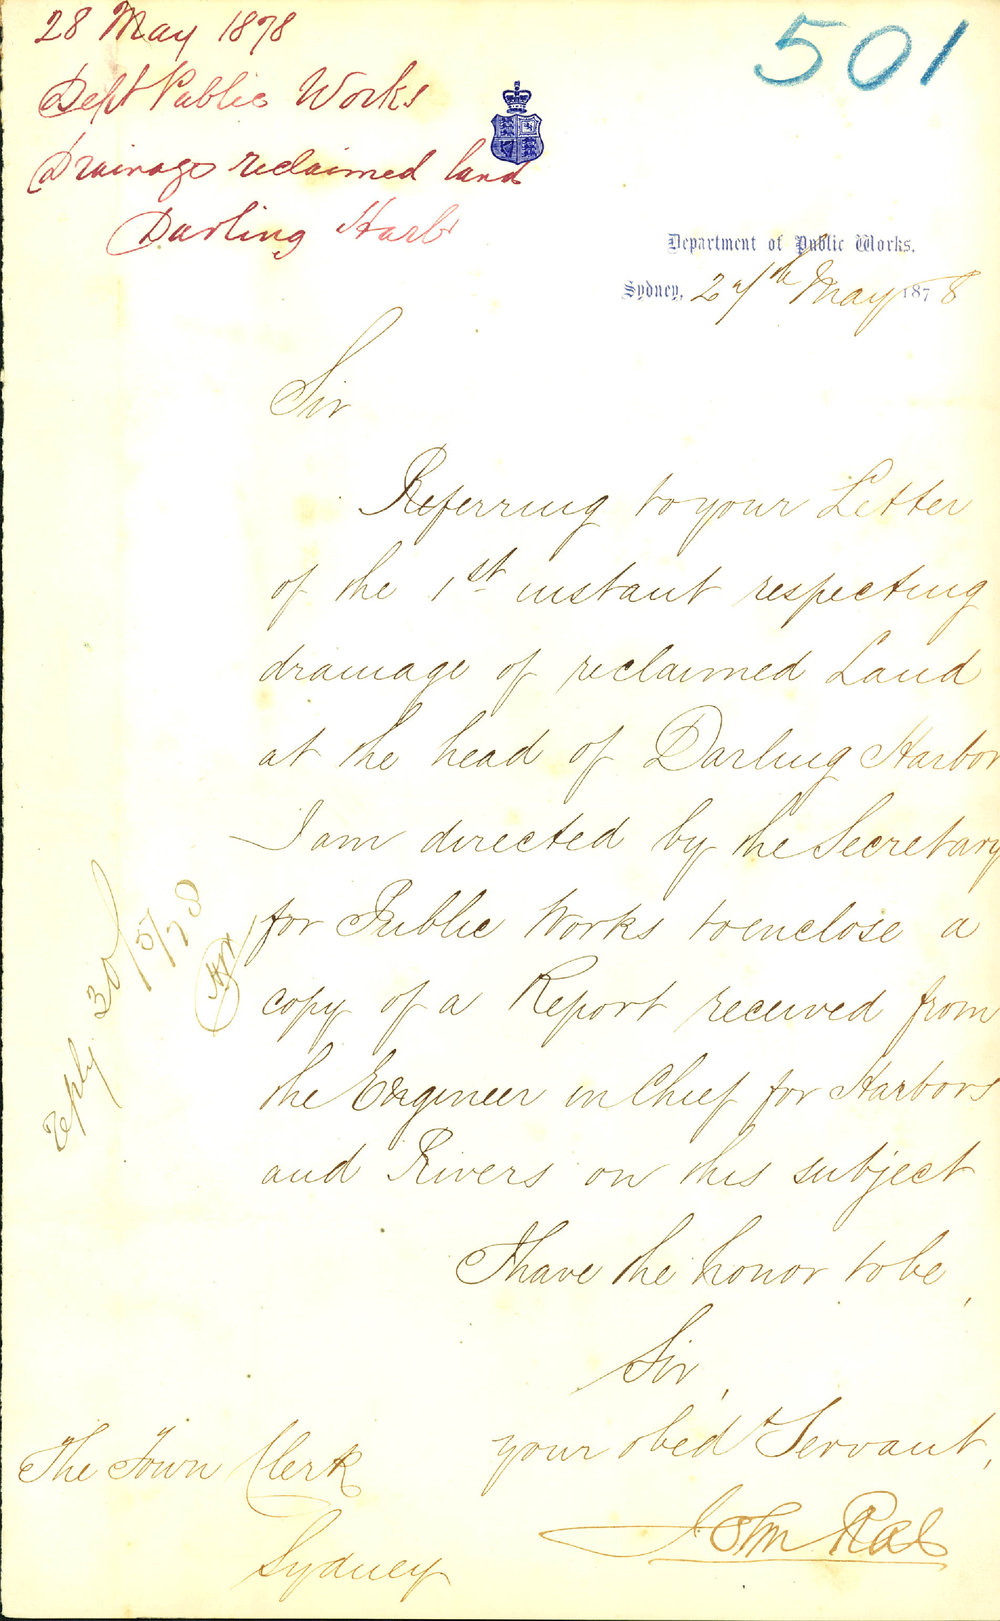 28 May 1878
501
Dept Public Works
Drainage reclaimed land
Darling Harbr
Department of Public Works.
Sydney, 27th May 1878
Sir
Referring to your Letter
of the 1st instant respecting
drainage of reclaimed Land
at the head of Darling Harbor
I am directed by the Secretary
for Public Works to enclose a
copy of a Report received from
the Engineer in Chief for Harbors
and Rivers on this subject
I have the honor to be,
Sir,
your obedt Servant,
John Rae
The Town Clerk
Sydney
reply 30/5/78